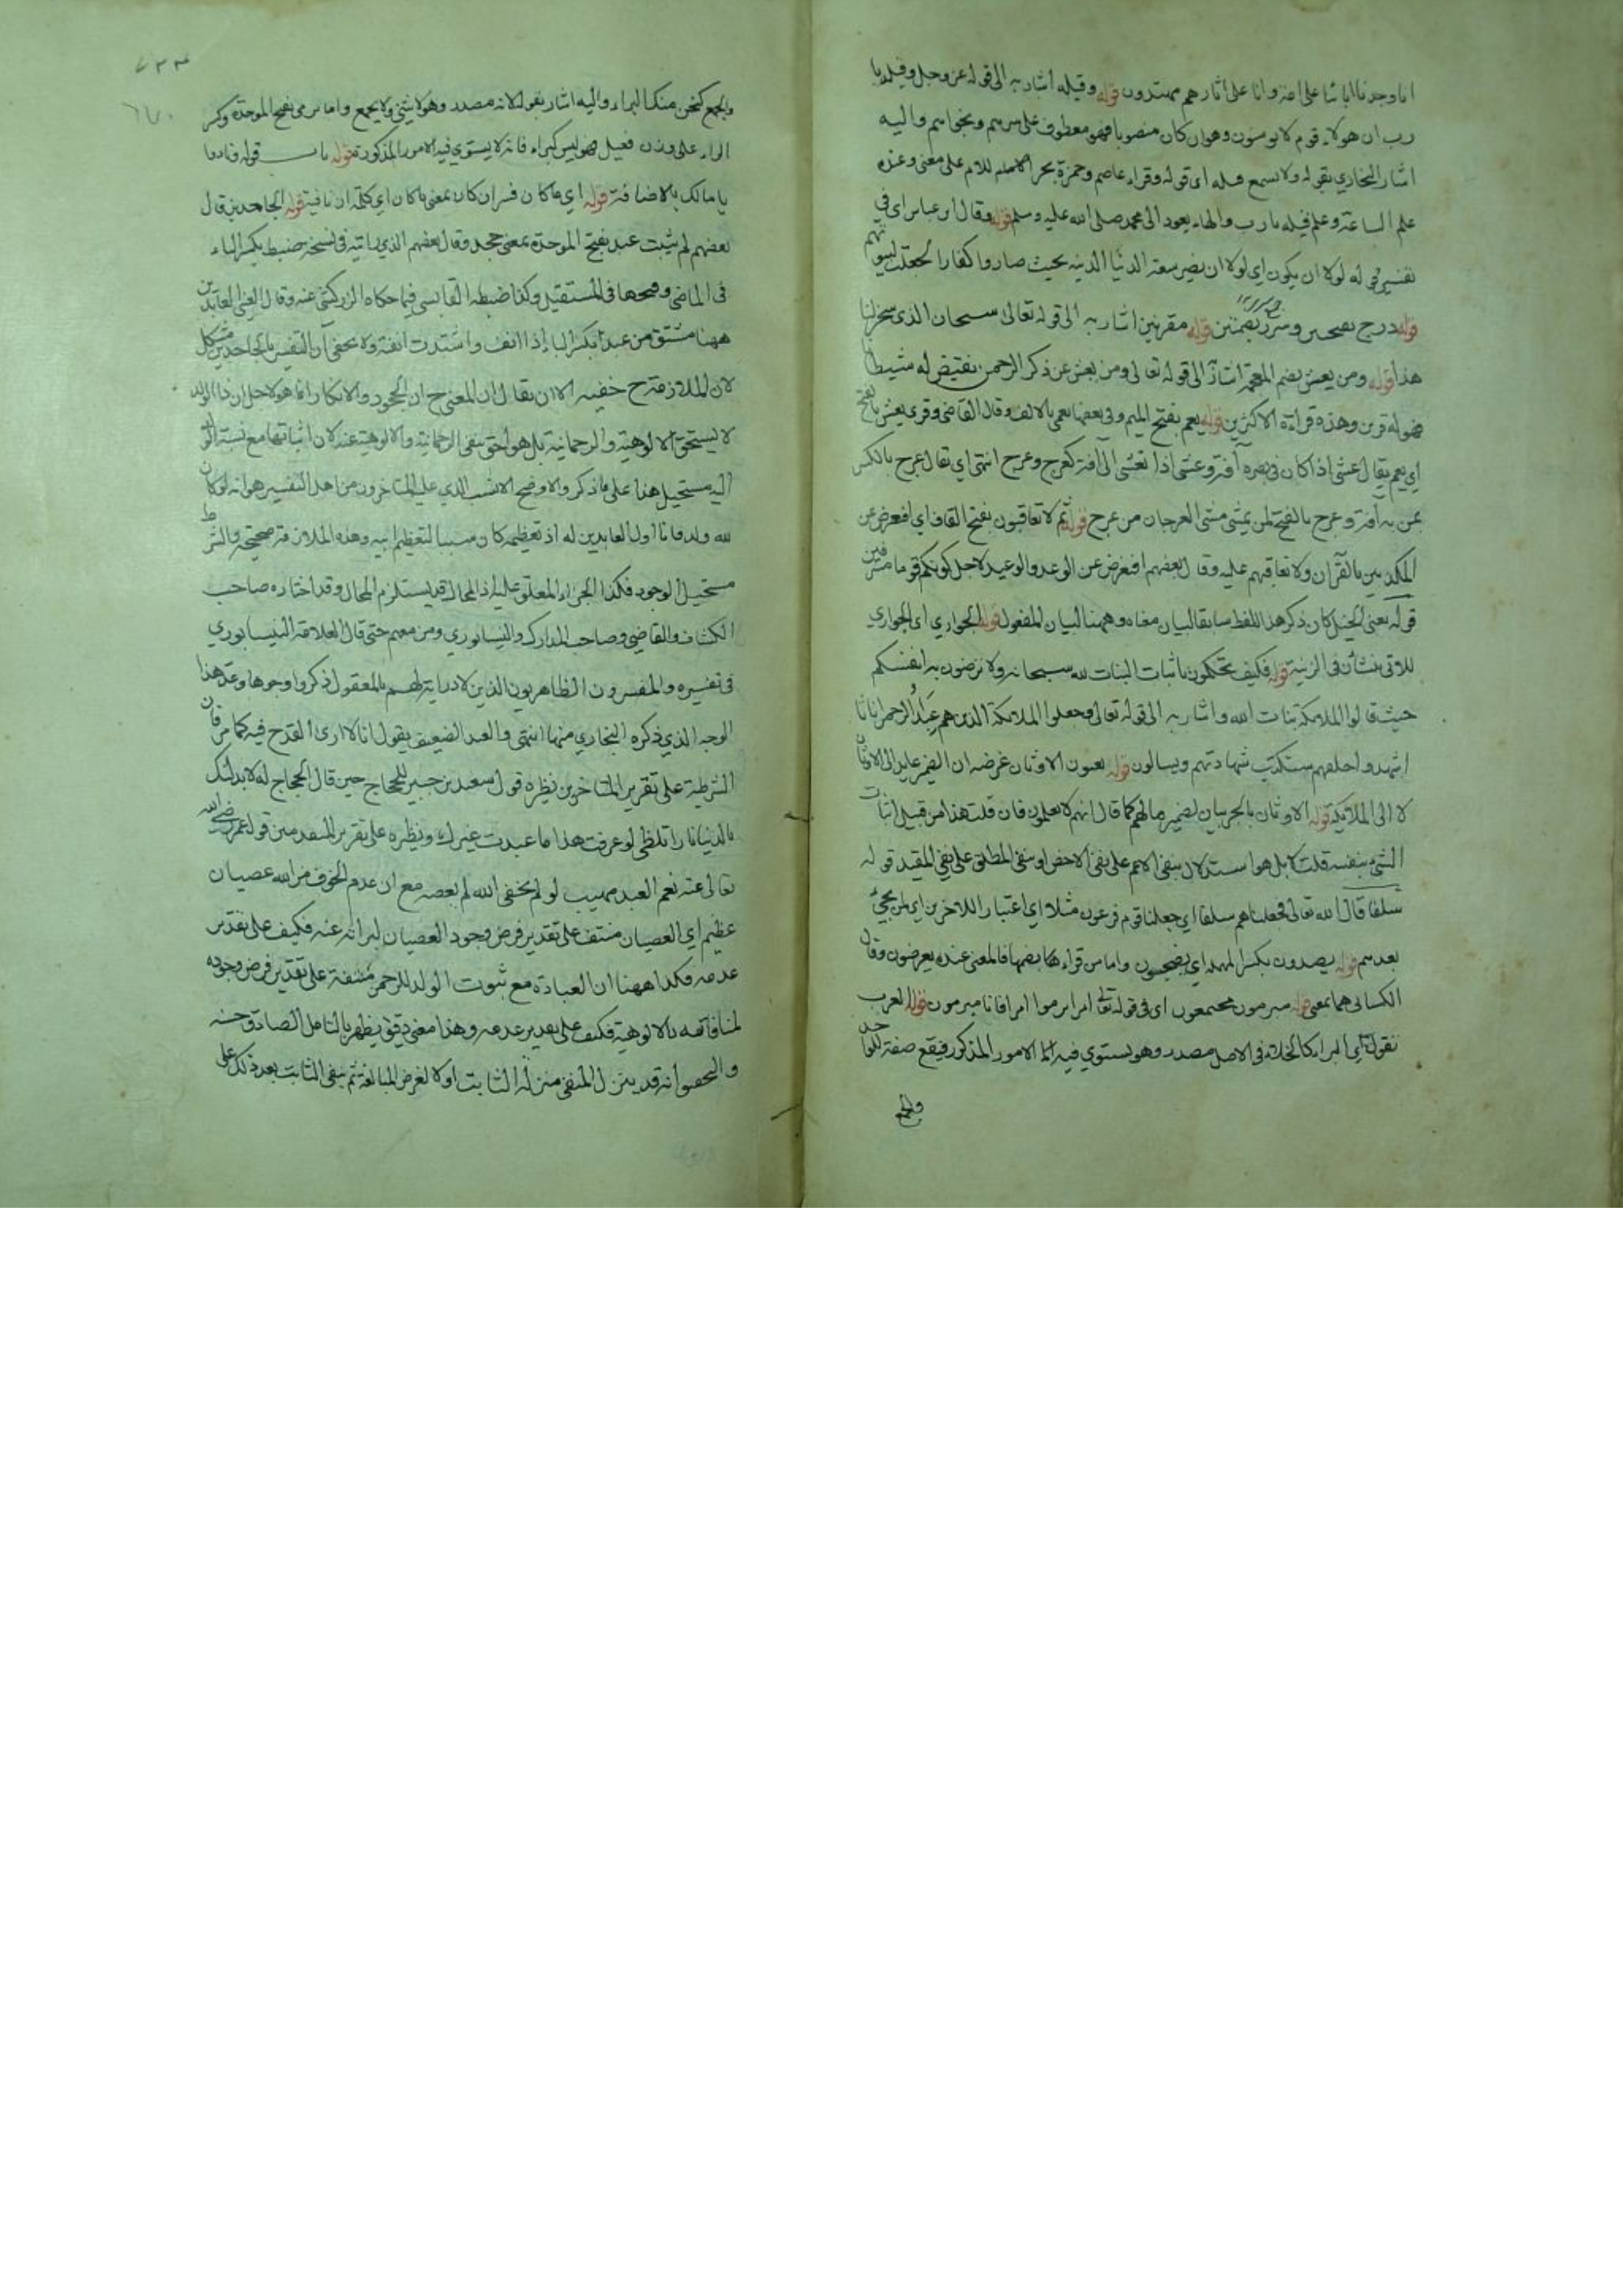 انا وجدنا اباءنا على امة وانا على اثارهم مهتدون قوله وقيله أشار به الى قوله عز وجل وقيله يا
رب ان هولاء قوم لا يومنون وهو ان كان منصوبا فهو معطوف على سرهم ونجواهم واليه
اشار البخاري بقوله ولا نسمع قيله اى قوله وقراء عاصم وحمزة بجر اللام على معنى وعنده
علم الساعة وعلم قيله يا رب والهاء يعود الى محمد صلى الله عليه وسلم قوله وقال ابن عباس اى في
تفسير قوله لولا ان يكون اي لولا ان يصير سعة الدنيا الدنيه بحيث صاروا كفارا لجعلت لبيوتهم
قوله درج بفتحتين وسرر بضمتين قوله مقرنين اشار به الى قوله تعالى سبحان الذى سخر لنا
هذا قوله ومن يعش بضم المعجمة اشارة الى قوله تعالى ومن يعش عن ذكر الرحمن نقيض له شيطانا
فهو له قرين وهذه قراءة الاكثرين قوله يعم بفتح الميم وفي بعضها يعمى بالالف وقال القاضى وقرى يعش بالفتح
اي يعم يقال عشى اذا كان في بصره آفة وعشى اذا تعشى الا آفة كعرج وعرج انتهى اي يقال عرج بالكسر
لمن به آفة وعرج بالفتح لمن يمشى مشى العرجان من عرج قوله ثم لا تعاقبون بفتح القاف اي افنعرض عن
المكذبين بالقرآن ولا نعاقبهم عليه وقال بعضهم افنعرض عن الوعد والوعيد لاجل كونكم قوما مسرفين
قوله يعنى الخيل كان ذكر هذا اللفظ سابقا لبيان معناه وههنا لبيان المفعول قوله الجواري اى الجواري
للاتى ينشأن فى الزينة قوله فكيف تحكمون باثبات البنات لله سبحانه ولا ترضون به لنفسكم
حيث قالوا الملائكة بنات الله واشار به الى قوله تعالى وجعلوا الملائكة الذين هم عباد الرحمن اناثا
اشهدوا خلقهم ستكتب شهادتهم ويسالون قوله يعنون الاوثان غرضه ان الضمير عايد الى الاوثان
لا الى الملائكة قوله الاوثان بالجر بيان لضمير ما لهم كما قال انهم لا يعلمون فان قلت هذا من قبيل اثبات
الشئ بنفسه قلت لا بل هو استدلال بنفى الاعم على نفى الاخص او بنفى المطلق على نفى المقيد قوله
سلفا قال الله تعالى فجعلناهم سلفا اي جعلنا قوم فرعون مثلا اي اعتبارا للاخرين اي لمن يجئ
بعدهم قوله يصدون بكسر المهملة اي يضجون واما من قراءها بضمها فالمعنى عنده يعرضون وقال
الكسائى هما بمعنى قوله مبرمون مجتمعون اى فى قوله تعالى ام ابرموا امرا فانا مبرمون قوله العرب
نقول اي البراء كالخلاء فى الاصل مصدر وهو يستوي فيه الامور المذكور فيقع صفة للواحد
والجمع
٦٧٠
والجمع كنحن منك البراء واليه اشار بقوله لانه مصدر وهو لا يثنى ولا يجمع واما بري بفتح الموحدة وكسر
الراء على وزن فعيل فهو ليس كبراء فانه لا يستوي فيه الامور المذكورة قوله باب قوله ونادوا
يا مالك بالاضافة قوله اي ما كان فسر ان كان بمعنى ما كان اي كلمة ان نافية قوله الجاحدين قال
بعضهم لم يثبت عبد بفتح الموحدة بمعنى جحد وقال بعضهم الذي رايته فى نسخة ضبط بكسر الباء
فى الماضى وفتحها فى المستقبل وكذا ضبطه القابسى فيما حكاه الزركشى عنه وقال العينى العابدين
ههنا مشتق من عبد بكسر الباء إذا انف واشتدت انفته ولا يخفى أن التفسير بالجاحدين مشكل
لان الملازمة ح خفيه الا ان يقال ان المعنى ح ان الجحود والانكار انما هو لاجل ان ذا الولد
لا يستحق الالوهية والرحمانية بل هو أحق بنفى الرحمانية والالوهية عنه لان اثباتها مع نسبة الولد
اليه مستحيل هذا على ما ذكر والاوضح الانسب الذي عليه المتاخرون من اهل التفسير هو انه لو كان
لله ولد فانا اول العابدين له اذ تعظيمه كان مسببا لتعظيم ابيه وهذه الملازمة صحيحة والشرط
مستحيل الوجود فكذا الجزاء المعلق عليه اذ المحال قد يستلزم المحال وقد اختاره صاحب
الكشاف والقاضي وصاحب المدارك والنيسابوري ومن معهم حتى قال العلامة النيسابوري
فى تفسيره والمفسرون الظاهريون الذين لا دراية لهم بالمعقول ذكروا وجوها وعد هذا
الوجه الذي ذكره البخاري منها انتهى والعبد الضعيف يقول انا لا ارى القدح فيه كما مر فان
الشرطية على تقرير المتاخرين نظيره قول سعيد بن جبير للحجاج حين قال الحجاج له لابدلنك
بالدنيا نارا تلظى لو عرفت هذا ما عبدت غيرك ونظيره على تقرير المتقدمين قوله عمر رضى الله
تعالى عنه نعم العبد صهيب لو لم يخف الله لم يعصه مع ان عدم الخوف من الله عصيان
عظيم اي العصيان منتف على تقدير فرض وجود العصيان لبراته عنه فكيف على تقدير
عدمه فكذا ههنا ان العبادة مع ثبوت الولد للرحمن منتفية على تقدير فرض وجوده
لمنافاته بالالوهية فكيف على تقدير عدمه وهذا معنى دقيق يظهر بالتامل الصادق حسنه
والتحقيق انه قد ينزل المنفى منزلة الثابت اولا لغرض المبالغة ثم ينفى الثابت بعد ذلك على